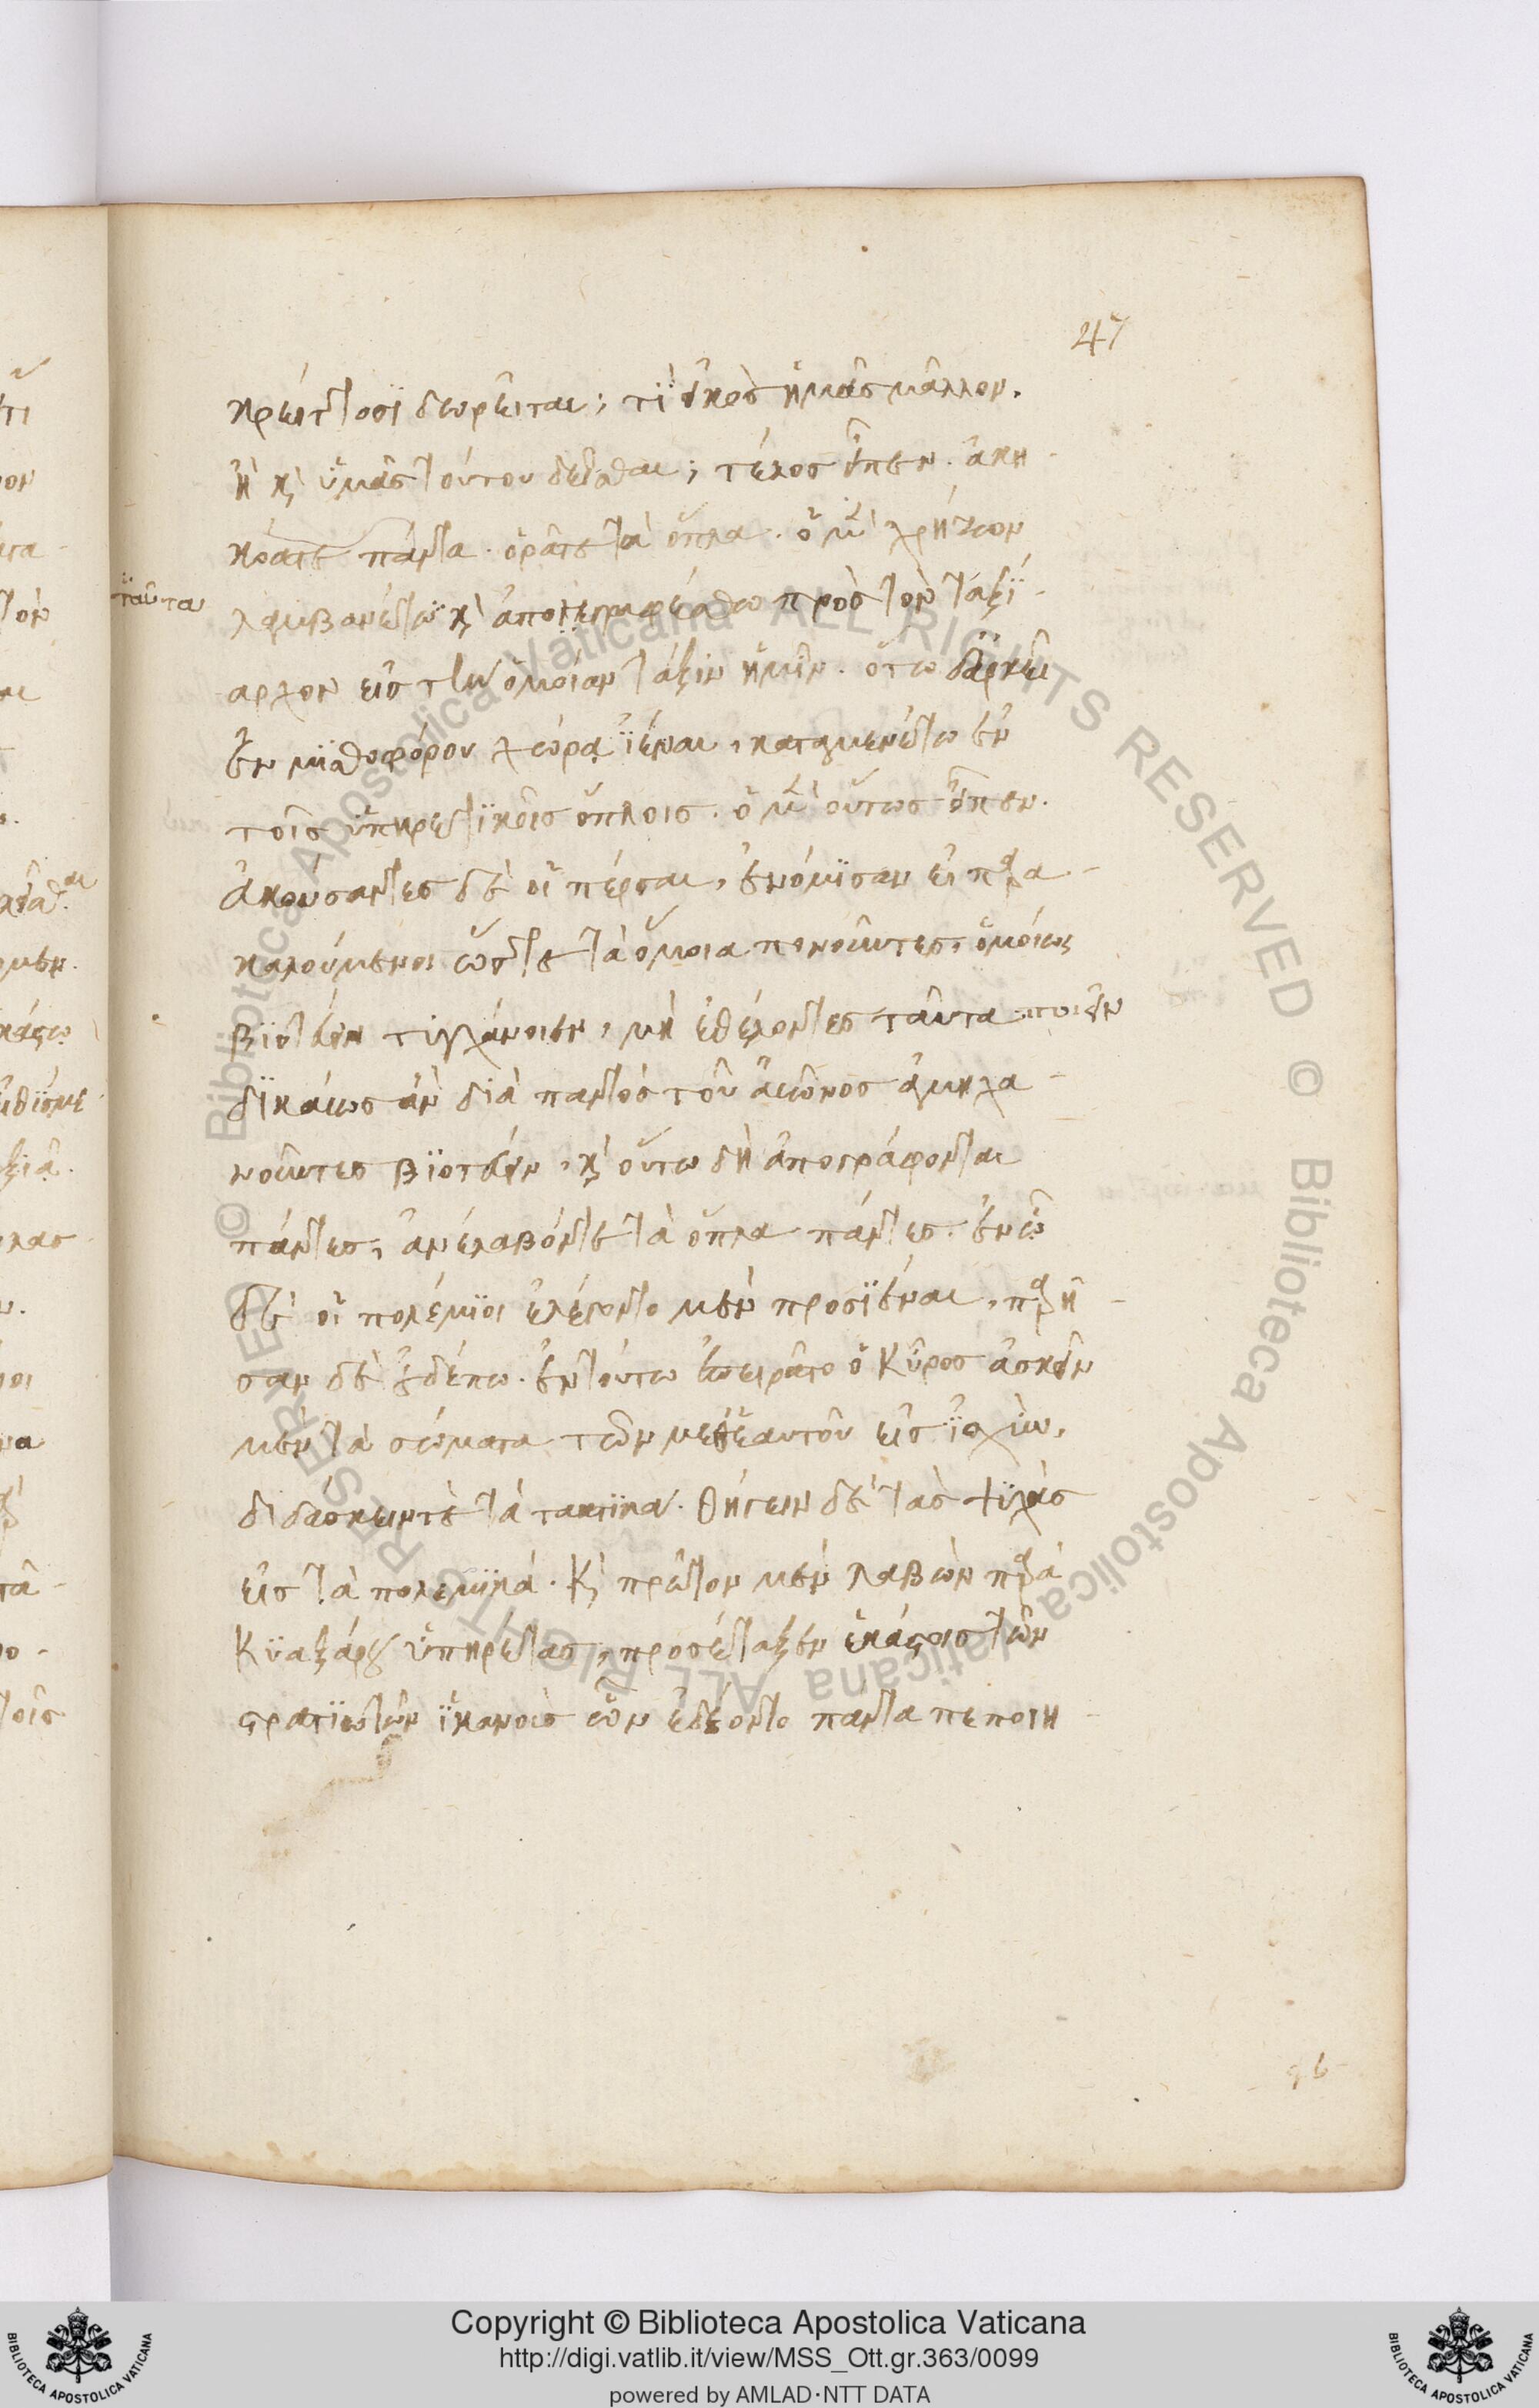 47
κρείττοσι δωρεῖται; τί εἰκὸς ἡμᾶς μᾶλλον,
ἢ καὶ ὑμᾶς τούτου δεῖσθαι; τέλος εἶπεν. ἀκη-
κόατε πάντα. ὁρᾶτε τὰ ὅπλα. ὁ μὲν χρήζων
ταῦτα
λαμβανέτω καὶ ἀπογεγραφέσθω πρὸς τὸν ταξι-
αρχον εἰς τὴν ὁμοίαν τάξιν ἡμῖν. ὅτω δ' ἀρκεῖ
ἐν μισθοφόρου χώρᾳ ἰέναι, καταμενέτω ἐν
τοῖς ὑπηρετικοῖς ὅπλοις. ὁ μὲν οὕτως εἶπεν.
ἀκούσαντες δὲ οἱ πέρσαι, ἐνόμισαν εἰ παρα-
καλούμενοι ὥστε τὰ ὅμοια πονοῦντες, ὁμοίως
βιοτεύειν τυγχάνοιεν, μὴ ἐθέλοντες ταῦτα ποιεῖν
δικαίως ἂν διὰ παντὸς τοῦ αἰῶνος ἀμηχα-
νοῦντες βιοτεύειν, καὶ οὕτω δὴ ἀπογράφονται
πάντες, ἀνελαβόντε τὰ ὅπλα πάντες. ἐν ᾧ
δὲ οἱ πολέμιοι ἐλέγοντο μὲν προσιέναι, παρῆ-
σαν δὲ οὐδέπω. ἐν τούτω ἐπειρᾶτο ὁ Κῦρος ἀσκεῖν
μὲν τὰ σώματα τῶν μεθ' ἑαυτοῦ εἰς ἰσχὺν,
διδάσκειν τὲ τὰ τακτικὰ. θήγειν δὲ τὰς ψυχὰς
εἰς τὰ πολεμικά. Καὶ πρῶτον μὲν λαβὼν παρὰ
Κυαξάρου ὑπηρέτας, προσέταξεν ἑκάστοις τῶν
στρατιωτῶν ἱκανοὺς ὧν ἐδέοντο πάντα πεποιη-
96
Copyright © Biblioteca Apostolica Vaticana
http://digi.vatlib.it/view/MSS_Ott.gr.363/0099
powered by AMLAD·NTT DATA
© Biblioteca Apostolica Vaticana ALL RIGHTS RESERVED © Biblioteca Apostolica Vaticana ALL RIGHTS RESERVED
BIBLIOTECA APOSTOLICA VATICANA
BIBLIOTECA APOSTOLICA VATICANA